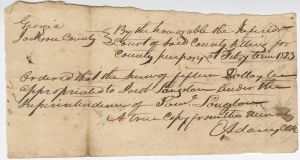 Georgia } By the honorable the Inferior
Jackson County } Court of said County sitting for
County purposes at Feby term 1823
Ordered that the sum of fifteen Dollars be
appropriated to under the
Superintendence of
A true Copy from the minutes